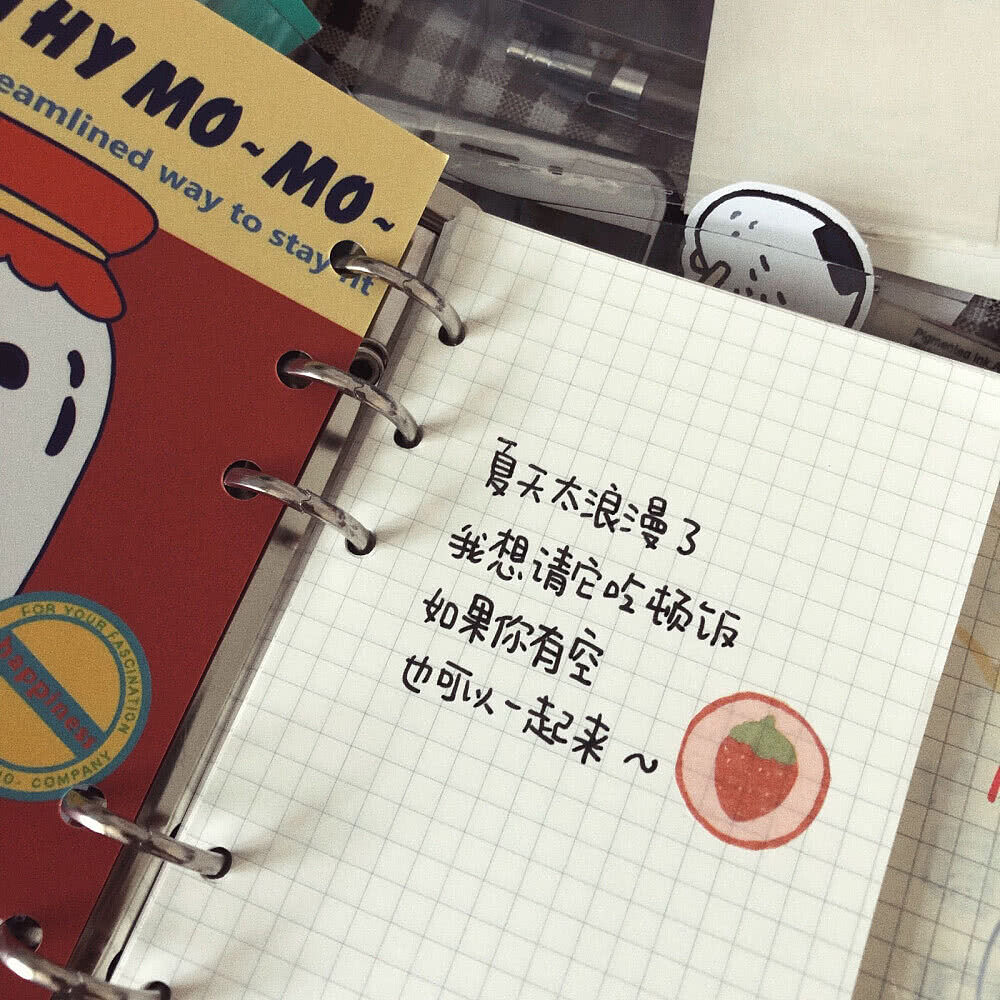 HY MO~MO~
eamlined way to stay fit
FOR YOUR FASCINATION
happiness
COMPANY
Pigmented Ink
夏天太浪漫了
我想请它吃顿饭
如果你有空
也可以一起来~